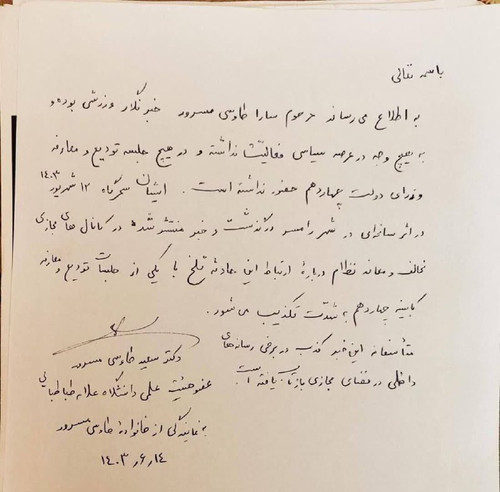 باسمه تعالی
به اطلاع می رساند مرحوم سارا طاوسی مسرور خبرنگار ورزشی بوده و
به هیچ وجه در عرصه سیاسی فعالیت نداشته و در هیچ جلسه تودیع و معارفه
وزرای دولت چهاردهم حضور نداشته است. ایشان سحرگاه ۱۲ شهریور ۱۴۰۳
در اثر سانحه‌ای در شهر رامسر درگذشت و خبر منتشر شده در کانال های مجازی
مخالف و معاند نظام درباره ارتباط این حادثه تلخ با یکی از جلسات تودیع و معارفه
کابینه چهاردهم به شدت تکذیب می شود.
متأسفانه این خبر کذب در برخی رسانه‌های
داخلی در فضای مجازی بازتاب یافته است.
دکتر سعید طاوسی مسرور
عضو هیئت علمی دانشگاه علامه طباطبایی
به نمایندگی از خانواده طاوسی مسرور
۱۴۰۳٫۶٫۱۴